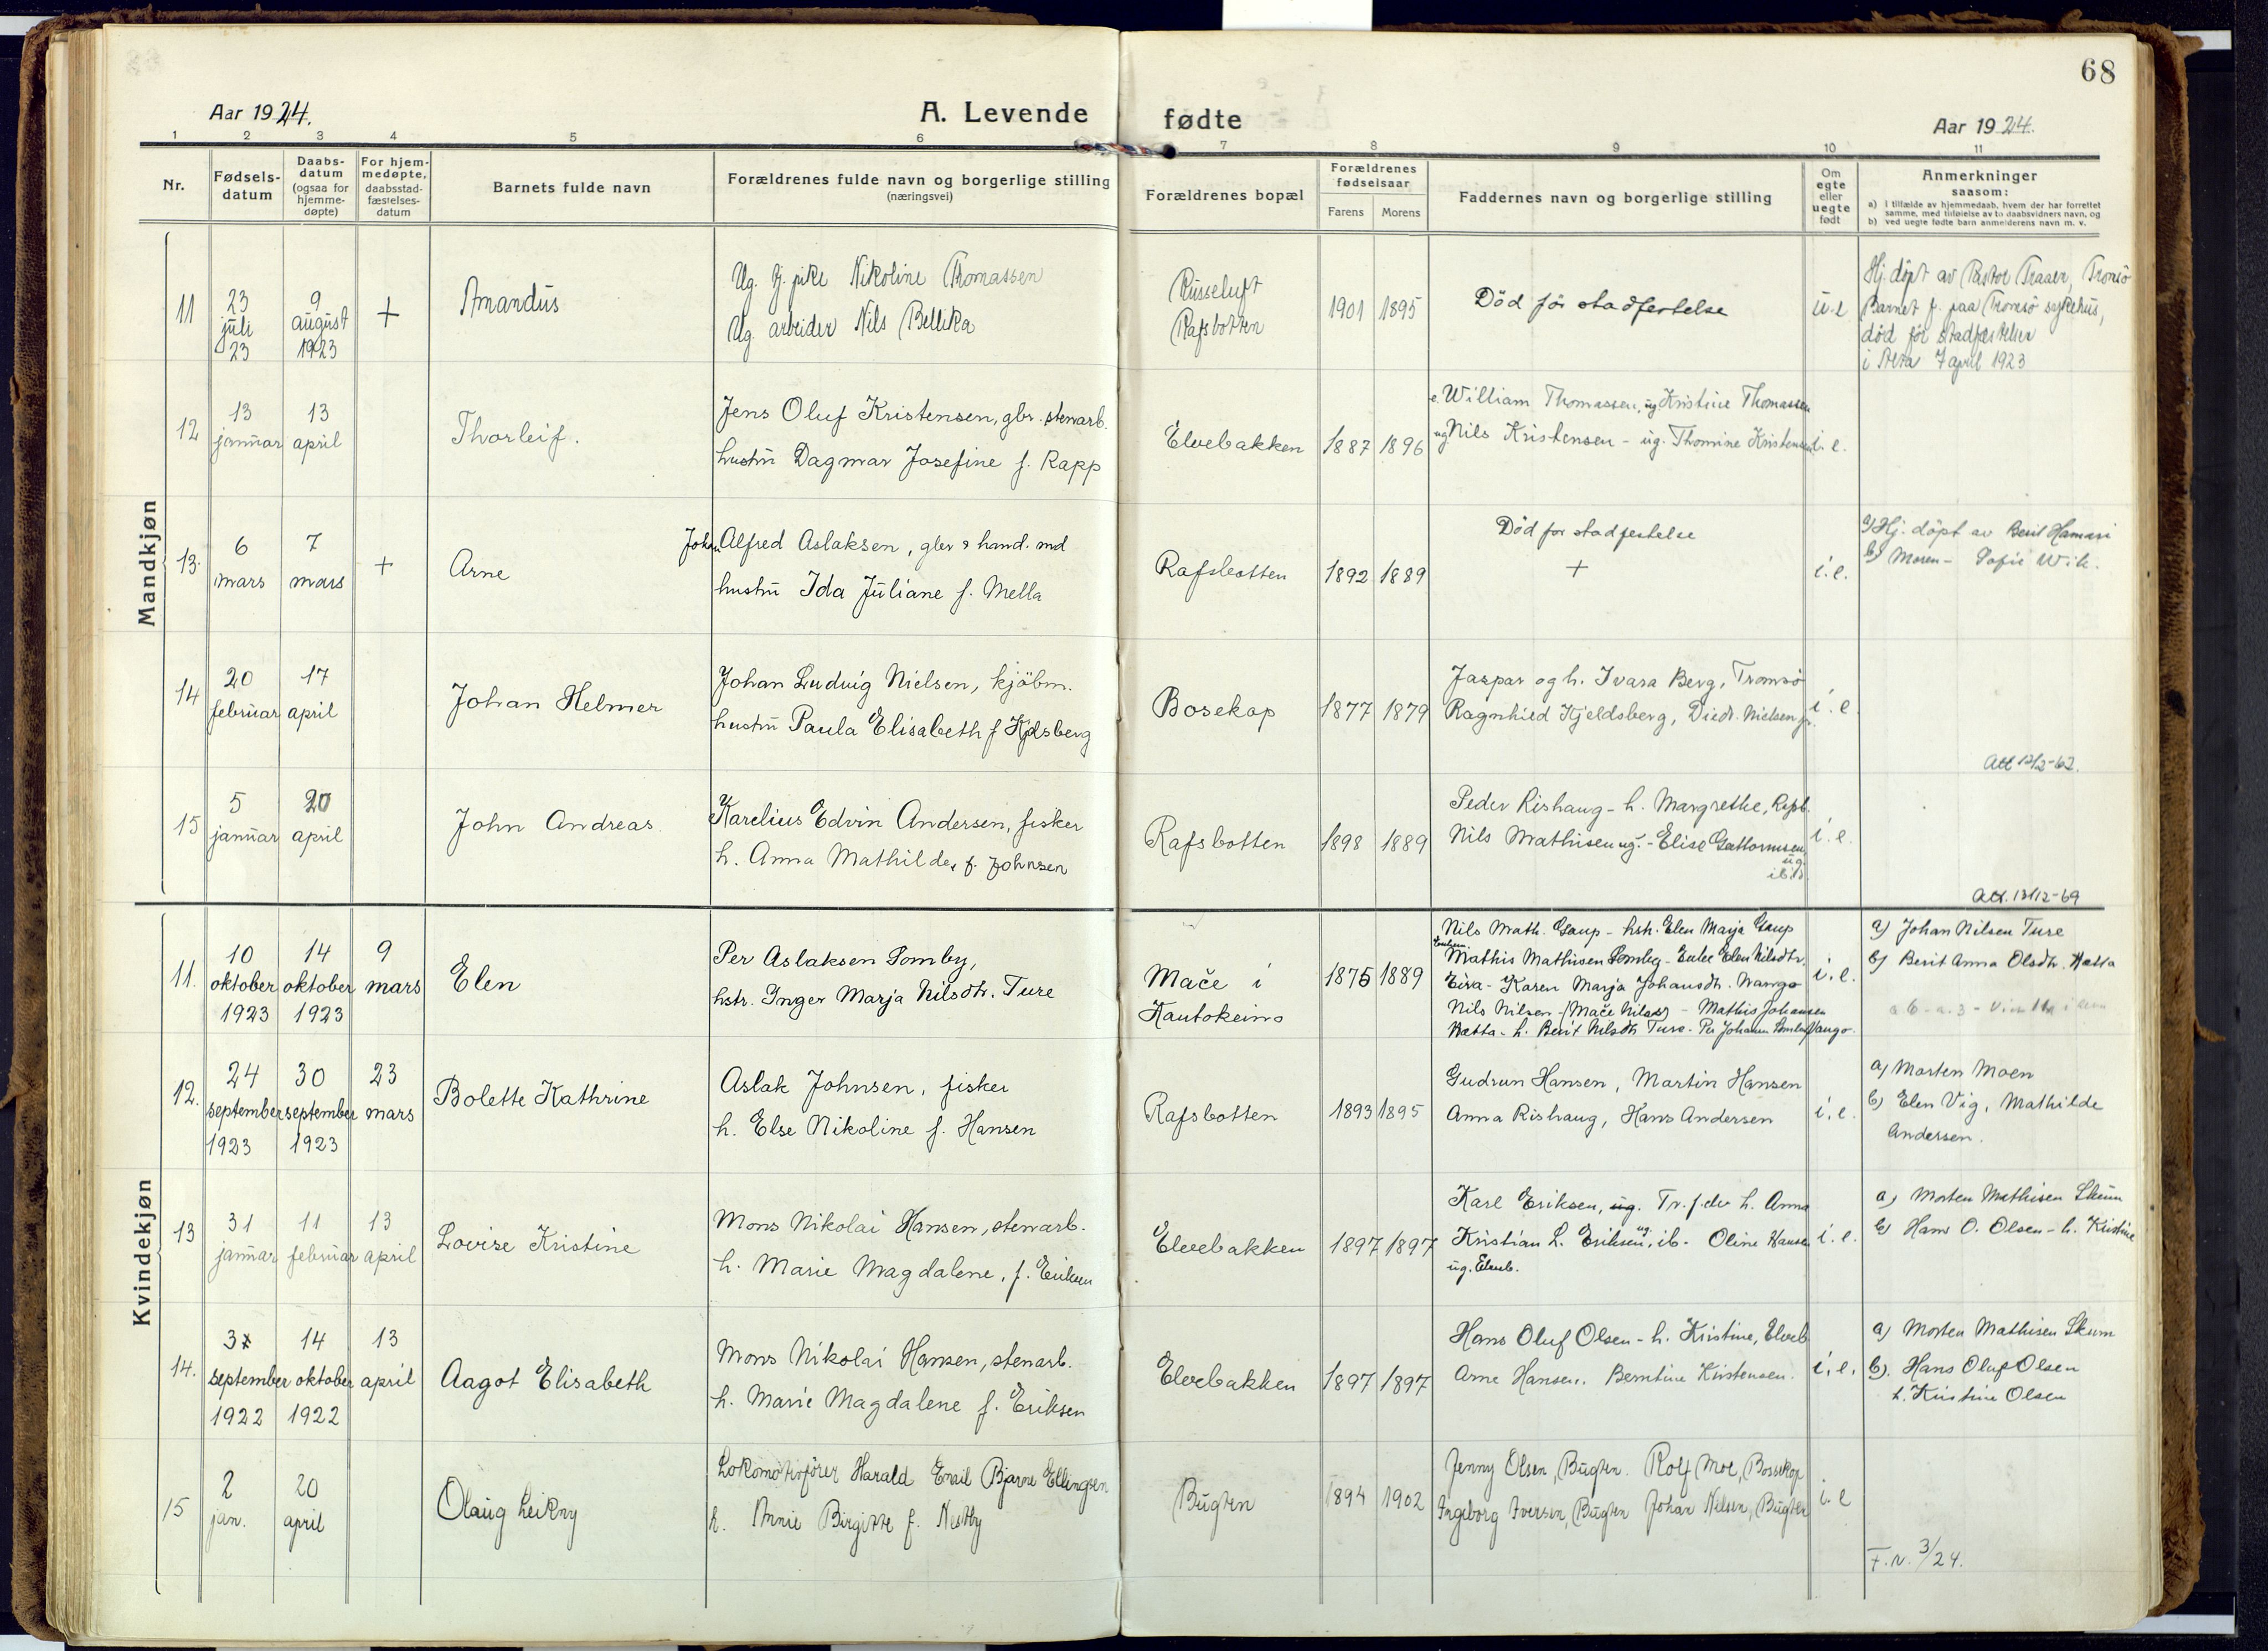 68
Aar 1924.
A. Levende
fødte
Aar 1924.
1 2 3 4 5 6 7 8 9 10 11
Nr.
Fødsels-
datum
Daabs-
datum
(ogsaa for
hjemme-
døpte)
For hjem-
medøpte,
daabsstad-
fæstelses-
datum
Barnets fulde navn
Forældrenes fulde navn og borgerlige stilling
(næringsvei)
Forældrenes bopæl
Forældrenes
fødselsaar
Farens Morens
Faddernes navn og borgerlige stilling
Om
egte
eller
uegte
født
Anmerkninger
saasom:
a) i tilfælde av hjemmedaab, hvem der har forrettet
samme, med tilføielse av to daabsvidners navn, og
b) ved uegte fødte barn anmelderens navn m. v.
Mandkjøn
11
23
juli
23
9
august
1923
+
Amandus
Ug. tj. pike Nikoline Thomassen
Ug. arbeider Nils Bellika
Russeluft
Rafsbotten
1901 1895
Död för stadfestelse
u.e
Hj. döpt av Pastor Traaen, Tromsö
Barnet f. paa Tromsö sykehus,
död för stadfæstelse
i Alta 7 april 1923
12
13
januar
13
april
Thorleif.
Jens Oluf Kristensen, gbr. stenarb.
hustru Dagmar Josefine f. Rapp
Elvebakken
1887 1896
e. William Thomassen, ug Kristine Thomassen
ug Nils Kristensen - ug. Thomine Kristensen
i. e.
13.
6
mars
7
mars
+
Arne
Johan Alfred Aslaksen, gbr & hand. md
hustru Ida Juliane f. Mella
Rafsbotten
1892 1889
Död for stadfestelse
+
i. e.
a) Hj. döpt av Berit Hamari
b) Moren - Sofie Wik.
14
20
februar
17
april
Johan Helmer
Johan Ludvig Nielsen, kjöbm.
hustru Paula Elisabeth f Kjdsberg
Bosekop
1877 1879
Jaspar og h. Ivara Berg, Tromsö
Ragnhild Kjeldsberg, Diedr. Nielsen jr.
i. e.
Att 12/2-62.
15
5
januar
20
april
John Andreas
Karelius Edvin Andersen, fisker
h. Anna Mathilde, f. Johnsen
Rafsbotten
1898 1889
Peder Rishaug - h. Margrethe, Rafsb.
Nils Mathisen ug. - Elise
ug.
ibid.
i. e.
Att. 13/12-69
Kvindekjøn
11.
10
oktober
1923
14
oktober
1923
9
mars
Elen
Per Aslaksen Somby,
hstr. Inger Marja Nilsdtr. Ture
Mače i
Kautokeino
1875 1889
Nils Math. Gaup - hsh. Elen Marja Gaup
Mathis Mathisen Somby - Enke Elen Nilsdtr.
Eira - Karen Marja Johansdtr. Wango
Nils Nilsen (Mače Nilas) - Mathis Johansen
Hætta - h. Berit Nilsdtr Ture - Per Johansen
i. e.
a) Johan Nilsen Ture
b) Berit Anna Olsdtr. Hætta
12.
24
september
1923
30
september
1923
23
mars
Bolette Kathrine
Aslak Johnsen, fisker
h. Else Nikoline f. Hansen
Rafsbotten
1893 1895
Gudrun Hansen, Martin Hansen
Anna Rishaug, Hans Andersen
i. e.
a) Morten Moen
b) Elen Vig, Mathilde
Andersen.
13
31
januar
11
februar
13
april
Lovise Kristine
Mons Nikolai Hansen, stenarb.
h. Marie Magdalene, f. Eriksen
Elvebakken
1897 1897
Karl Eriksen, ug. Tr. f. dr h. Anna
Kristian L. Eriksen, ug. ib. Oline Hansen
ug. Elveb.
i. e.
a) Morten Mathisen Skum
b) Hans O. Olsen - h. Kristine
14.
3
september
1922
14
oktober
1922
13
april
Aagot Elisabeth
Mons Nikolai Hansen, stenarb.
h. Marie Magdalene f. Eriksen
Elvebakken
1897 1897
Hans Oluf Olsen - h. Kristine, Elveb
Arne Hansen. Berntine Kristensen.
i. e.
a) Morten Mathisen Skum
b). Hans Oluf Olsen
h. Kristine Olsen
15
2
jan.
20
april
Olaug Leikny
Lokomotivförer Harald Emil Bjarne Ellingsen
h. Annie Birgitte f. Nestby
Bugten
1894 1902
Jenny Olsen, Bugten. Rolf Moe, Bossekop
Ingeborg Iversen, Bugten Johan Nilsen, Bugten
i. e
F. N. 3/24.